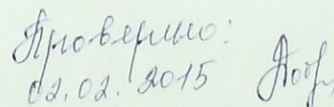 Проверено:
02.02.2015